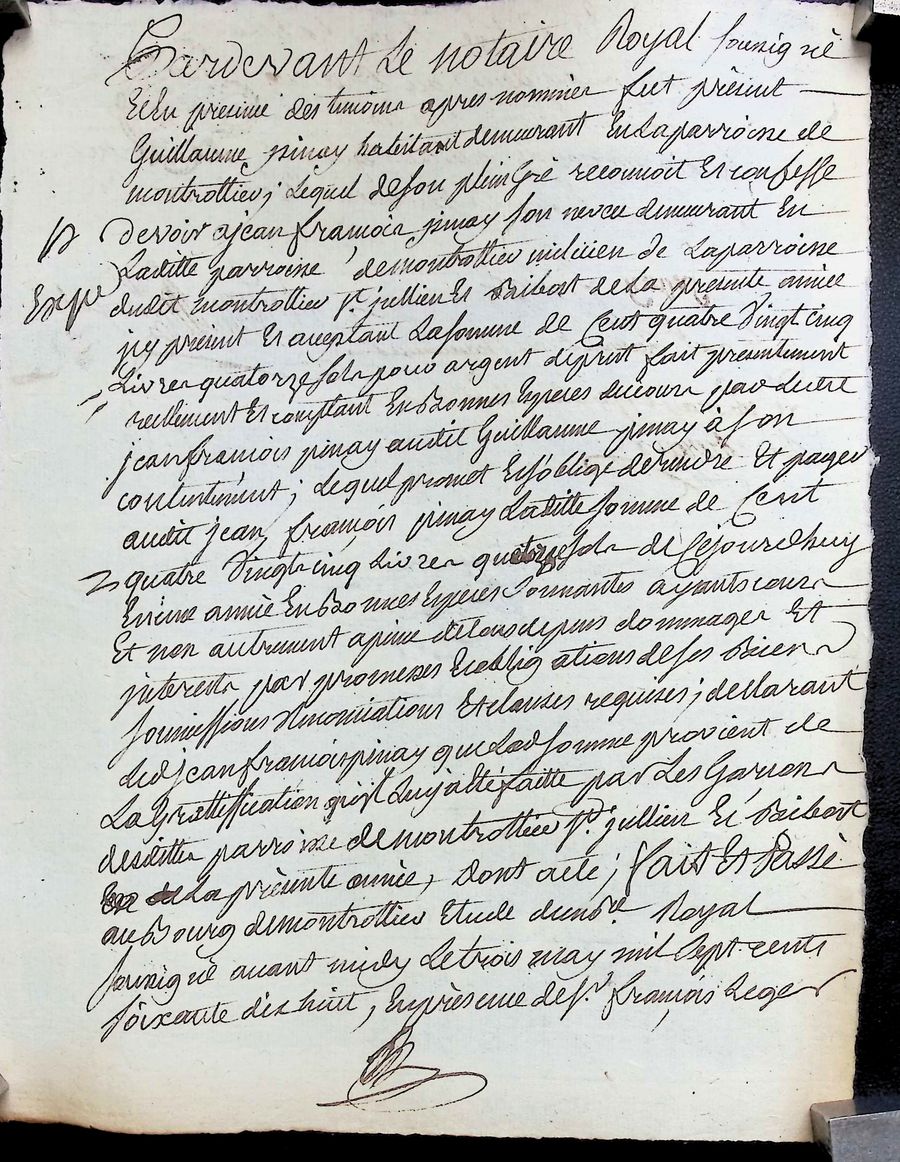 Pardevant Le notaire Royal sousigné
Et En presence des temoins apres nommes fut présent
Guillaume pinay habitant demeurant En La parroisse de
montrottier; Lequel de son plein Gré reconnoit Et confesse
devoir a jean françois pinay son neveu demeurant En
Laditte parroisse de montrottier milicien de La parroisse
dudit montrottier St. jullien Et Baibost de La présente année
icy présent Et acceptant La somme de Cent quatre Vingt cinq
Livres quatorze sols pour argent de prest fait présentement
reellement Et comptant En Bonnes Especes de cours par Ledit
jean françois pinay audit Guillaume pinay à son
contentement; Lequel promet Et s'oblige de rendre Et payer
audit jean françois pinay Laditte somme de Cent
quatre Vingt cinq Livres quatorze sols de Cejourdhuy
En une année En Bonnes Especes Sonnantes ayants cours
Et non autrement a peine de tous depens dommages Et
interests par promesses Et obligations de ses Biens
soumissions renonciations Et clauses requises; declarant
Led jean françois pinay que Lad somme provient de
La Grattiffication qui Luy a été faitte par Les Garcons
desdittes parroisse de montrottier St. jullien Et Baibost
En La présente année, Dont acte; fait Et Passé
au Bourg de montrottier Etude du nre. Royal
sousigné avant midy Le trois may mil Sept cents
soixante dix huit, En présence de Sr. françois Leger
Expé